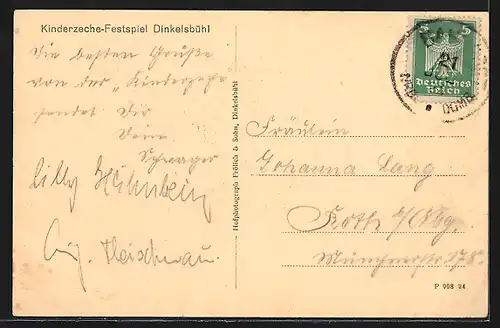 Kinderzeche-Festspiel Dinkelsbühl
Die besten Grüße
von der „Kinderzeche
sendet Dir
Dein
Schwager
Lilly
Hofphotograph Frölich & Sohn, Dinkelsbühl
5
Deutsches
Reich
Fräulein
Johanna Lang
Roth a/Nbg.
P 908 24